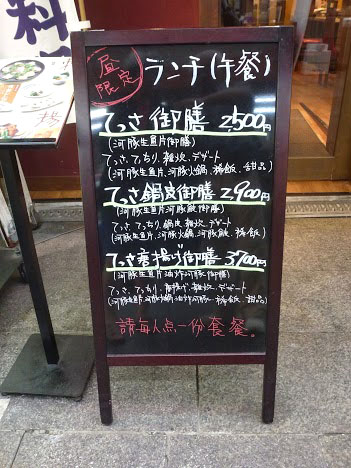 料
昼
限定
ランチ(午餐)
てっさ御膳 2,500円
(河豚生魚片御膳)
てっさ、てっちり、雑炊、デザート
(河豚生魚片、河豚火鍋、稀飯、甜品)
てっさ鍋皮御膳 2,900円
(河豚生魚片河豚皮御膳)
てっさ、てっちり、鍋皮、雑炊、デザート
(河豚生魚片、河豚火鍋、河豚皮、稀飯)
てっさ唐揚げ御膳 3,700円
(河豚生魚片油炸河豚御膳)
てっさ、てっちり、唐揚げ、雑炊、デザート
(河豚生魚片、河豚火鍋、油炸河豚、稀飯、甜品)
請每人点一份套餐。